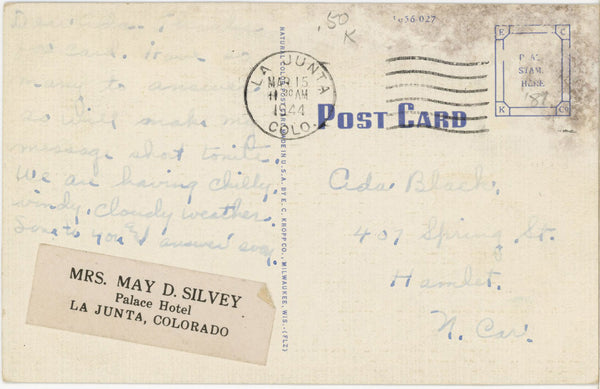 .50
K
1656 027
LA JUNTA
MAR 15
11 30 AM
1944
COLO.
E C
STAM
HERE
K Co
15¢
POST CARD
NATURAL COLOR POST CARD MADE IN U.S.A. BY E. C. KROPP CO., MILWAUKEE, WIS. (FLZ)
card. have so
many to answer
so will make my
message short tonite.
We are having chilly,
windy, cloudy weather.
to you & answer soon.
MRS. MAY D. SILVEY
Palace Hotel
LA JUNTA, COLORADO
Ada Black.
407 Spring St.
Hamlet.
N. Car.